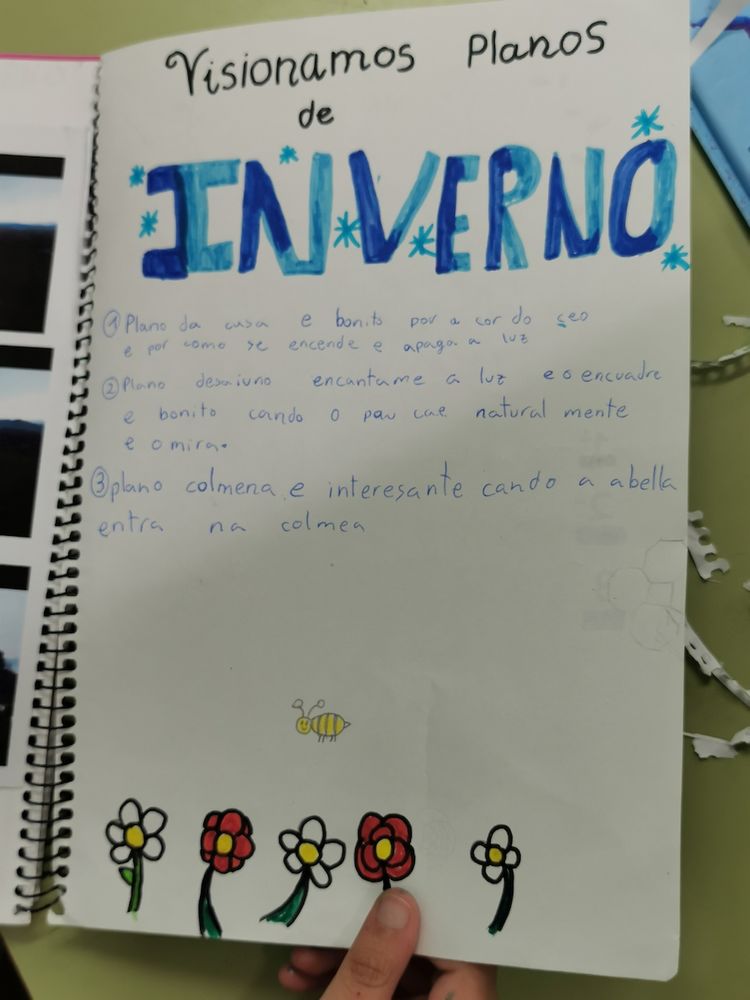 Visionamos Planos
de
INVERNO
① Plano da casa e bonito por a cor do ceo
e por como se encende e apaga a luz
② Plano desaiuno encantame a luz e o encuadre
e bonito cando o pan cae natural mente
e o mira.
③ plano colmena e interesante cando a abella
entra na colmea